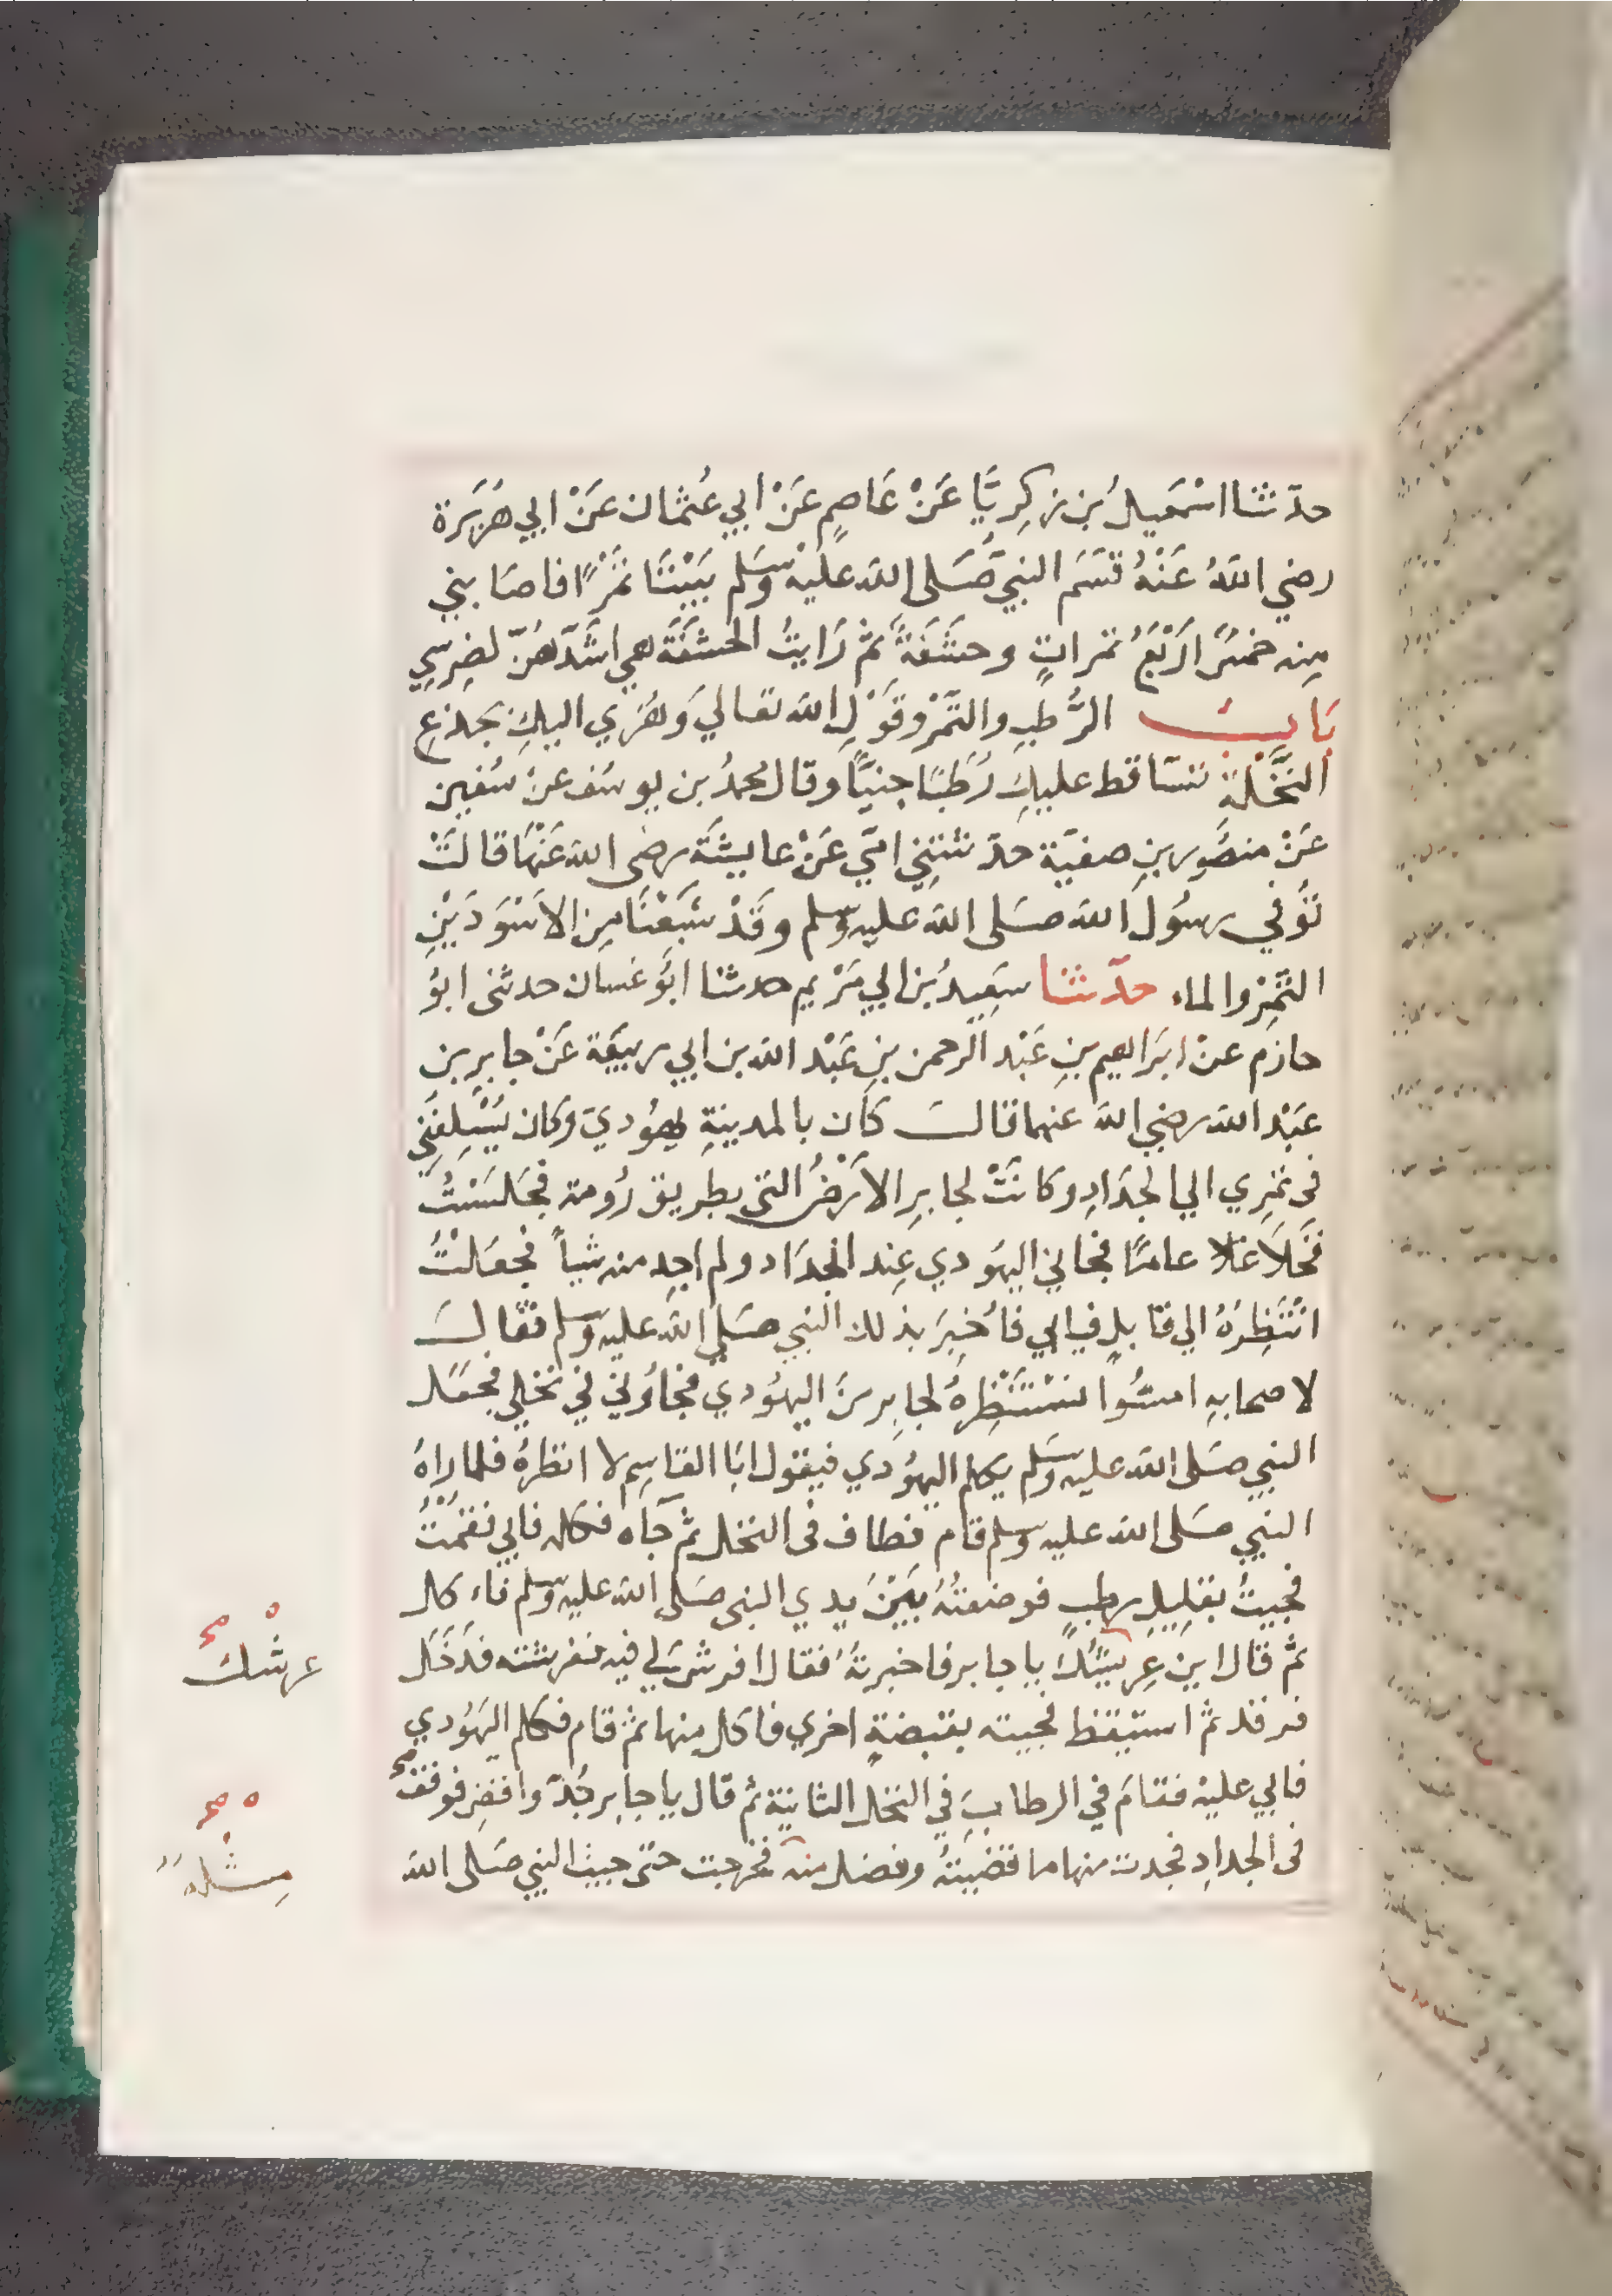 حدّثنا اسْمَعيلُ بن زكِريَّا عَنْ عَاصِمٍ عَنْ ابي عُثمان عَنْ ابي هُرَيرة
رضي اللهُ عَنْهُ قسَمَ النبيُّ صَلى الله عليْه وسَلم بَيْنَنَا تمْرًا فاصَابني
مِنه خمسٌ ارْبَعُ تمراتٍ وحشَفَةٌ ثم رَايتُ الحشفَةَ هي اشَدّهُنّ لضِرسِي
بَابُ الرُّطبِ والتَّمْرْ وقَوْلِ الله تعالي وَهُزي اليكِ بجذعِ
النَّخْلةِ تسّاقط عليكِ رُطَبًا جنيًّا وقال محمدُ بن يوسُف عنْ سُفين
عَنْ منصُورِ بنِ صفيّة حدّثتنِي امّي عَنْ عايشَة رضى الله عَنْهَا قالتْ
تُوُفي رسُول الله صَلى الله عليه وسلم وقَدْ شَبِعْنَا مِن الاسْوَدَيْنِ
التّمْرِ والماء حدّثنا سَعِيدُ بن ابي مَرْيم حدثنا ابُو غسان حدثنى ابوُ
حازم عنْ ابرَاهيم بنِ عَبْد الرحمن بنِ عَبْد الله بن ابي ربيعَة عَنْ جابِرِ بن
عَبْد الله رضي الله عنهما قالَ كان بالمدينةِ يهُودي وكان يُسْلِفُنِي
فى تمْرِي الي الجدَادِ وكانَتْ لجابِرِ الارْضُ التى بطريق رُومة فجَلسَتْ
فخَلَا غلا عامًا فجاني اليهُودي عِند الجدَاد ولم اجِد منه شياً فجعَلْتُ
انْتَظِرُهُ الي قابلٍ فيابي فاُخبِرَ بذلك النبي صَلي الله عليه وسَلم فقالَ
لاصحابهِ امشُوا نسْتَنْظِرهُ لجابِرٍ منَ اليهُودي فجاُوني في نخلي فجعَل
النبي صَلى الله عليه وسَلم يكلم اليهُودي فيقول ابَا القاسِم لا انظرهُ فلما راهُ
النبي صَلى الله عليه وسلم قام فطاف فى النخل ثم جَاه فكلمه فابي فقمْتُ
فجيتُ بقلِيلِ رطبٍ فوضعتُهُ بَيْنَ يدي النبى صَلى الله عليه وسلم فاكل
ثم قال اين عِرِيشُكَ ياجابر فاخبرتُهُ فقال افرش لي فيه ففرشته فدَخَل
فرقد ثم استيقظ فجيته بقبضةٍ اخري فاكل منها ثم قام فكلم اليهُودي
فابي عليْه فقامَ في الرطابِ في النخل الثانية ثم قال ياجابر جُدّ واقضِ فوقف
فى الجدادِ فجددت منها ما قضيتهُ وفضل منه فخرجت حتى جيت النبي صَلى الله
عرشك
مِثلهُ